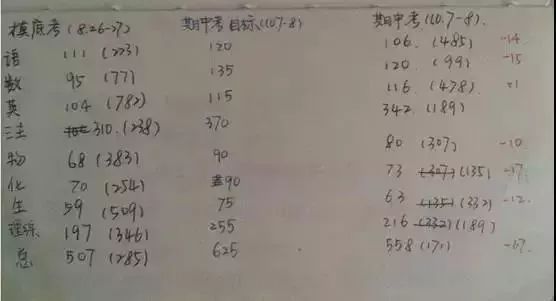 摸底考 (8.26-27) 期中考目标(10.7-8) 期中考 (10.7-8).
语 111 (223) 120 106. (485) -14
数 95 (77) 135 120. (99) -15
英 104 (782) 115 116 (478) +1
三主 310.(238) 370 342 (189)
物 68 (383) 90 80 (307) -10
化 70 (254) 90 73 (307) (135) -17
生 59 (509) 75 63 (135) (332) -12
理综 197 (346) 255 216 (332) (189)
总 507 (285) 625 558 (171) -67